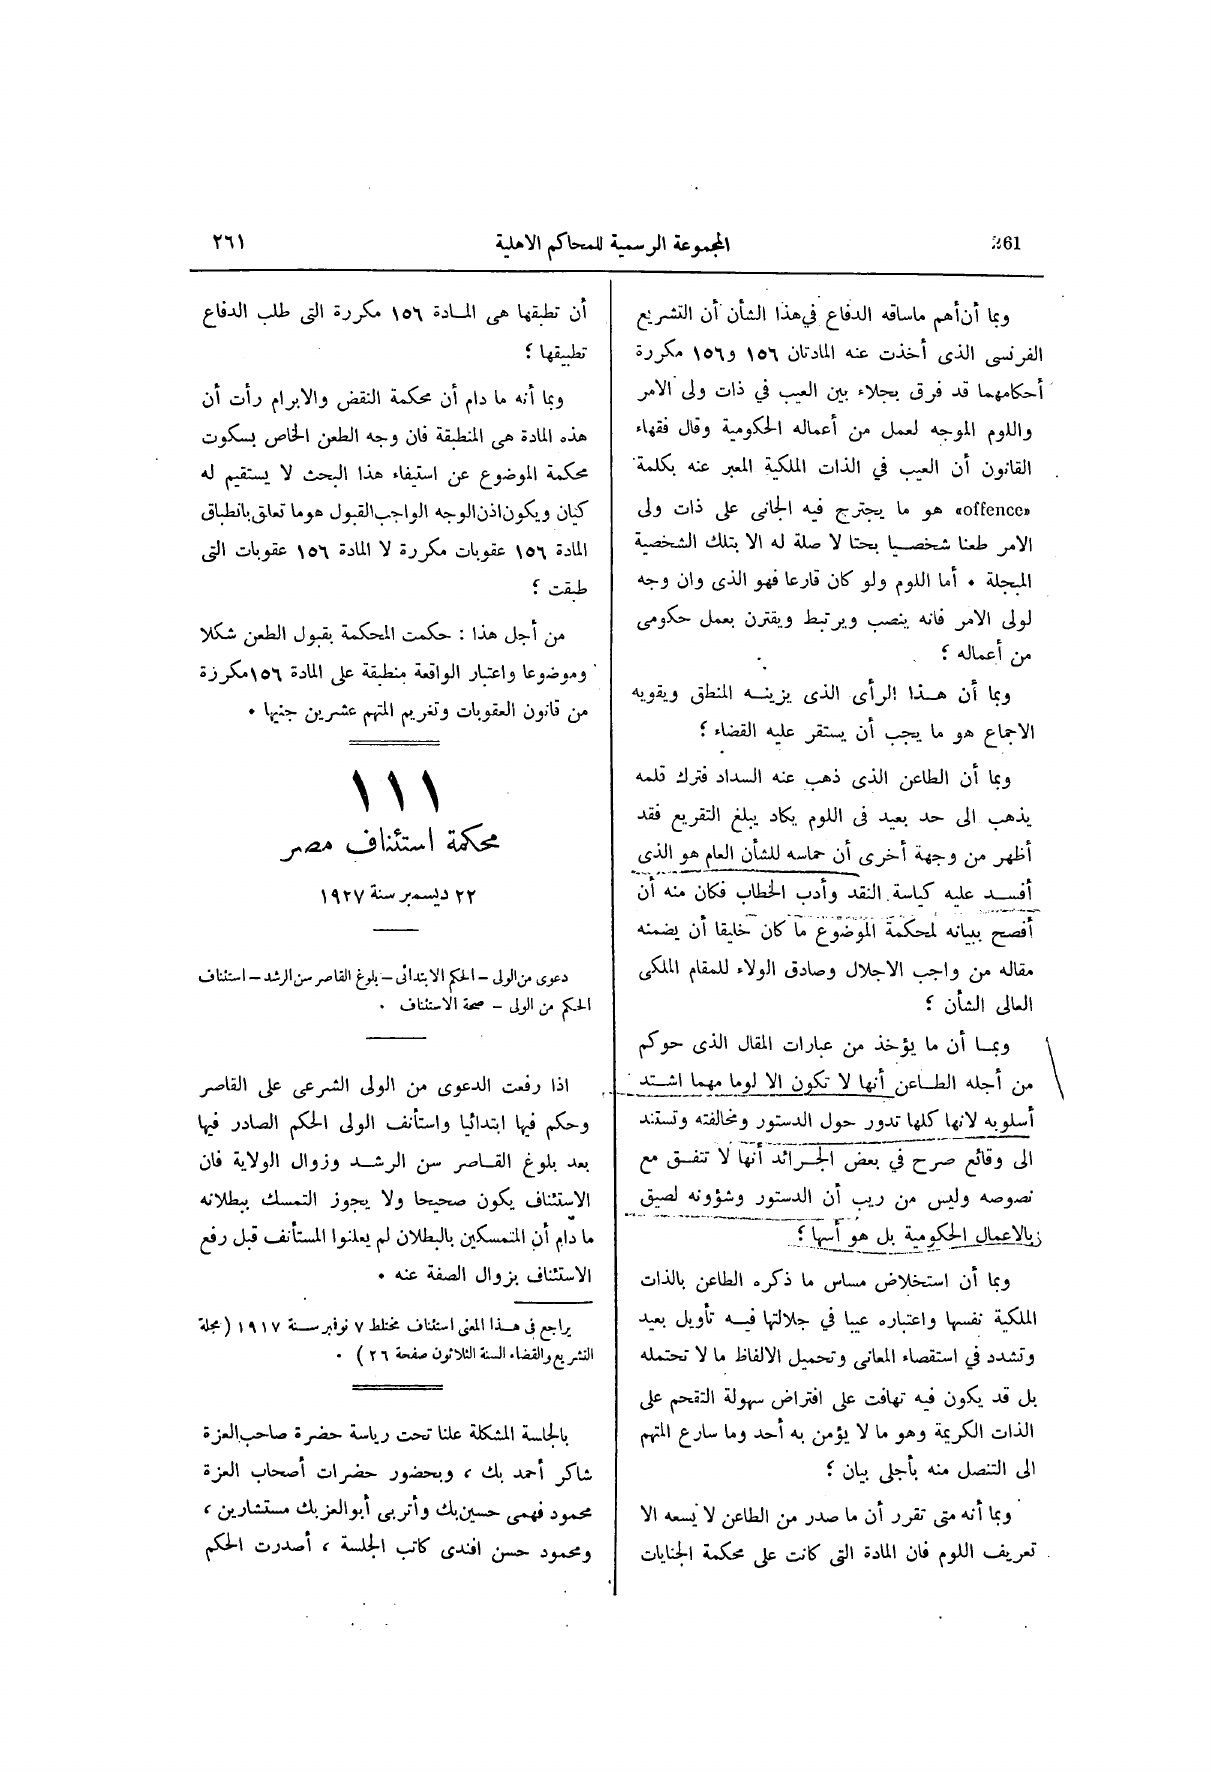 261
المجموعة الرسمية للمحاكم الاهلية
٢٦١
وبما أن أهم ماساقه الدفاع في هذا الشأن أن التشريع
الفرنسى الذى أخذت عنه المادتان ١٥٦ و١٥٦ مكررة
أحكامهما قد فرق بجلاء بين العيب في ذات ولى الامر
واللوم الموجه لعمل من أعماله الحكومية وقال فقهاء
القانون أن العيب في الذات الملكية المعبر عنه بكلمة
«offence» هو ما يجترح فيه الجانى على ذات ولى
الامر طعنا شخصيا بحتا لا صلة له الا بتلك الشخصية
المبجلة . أما اللوم ولو كان قارعا فهو الذى وان وجه
لولى الامر فانه ينصب ويرتبط ويقترن بعمل حكومى
من أعماله ؛
وبما أن هذا الرأى الذى يزينه المنطق ويقويه
الاجماع هو ما يجب أن يستقر عليه القضاء ؛
وبما أن الطاعن الذى ذهب عنه السداد فترك قلمه
يذهب الى حد بعيد فى اللوم يكاد يبلغ التقريع فقد
أظهر من وجهة أخرى أن حماسه للشأن العام هو الذى
أفسد عليه كياسة النقد وأدب الخطاب فكان منه أن
أفصح ببيانه لمحكمة الموضوع ما كان خليقا أن يضمنه
مقاله من واجب الاجلال وصادق الولاء للمقام الملكى
العالى الشأن ؛
وبما أن ما يؤخذ من عبارات المقال الذى حوكم
من أجله الطاعن أنها لا تكون الا لوما مهما اشتد
أسلوبه لانها كلها تدور حول الدستور ومخالفته وتستند
الى وقائع صرح في بعض الجرائد أنها لا تتفق مع
نصوصه وليس من ريب أن الدستور وشؤونه لصيق
بالاعمال الحكومية بل هو أسها ؛
وبما أن استخلاص مساس ما ذكره الطاعن بالذات
الملكية نفسها واعتباره عيبا في جلالتها فيه تأويل بعيد
وتشدد في استقصاء المعانى وتحميل الالفاظ ما لا تحتمله
بل قد يكون فيه تهافت على افتراض سهولة التقحم على
الذات الكريمة وهو ما لا يؤمن به أحد وما سارع المتهم
الى التنصل منه بأجلى بيان ؛
وبما أنه متى تقرر أن ما صدر من الطاعن لا يسعه الا
تعريف اللوم فان المادة التى كانت على محكمة الجنايات
أن تطبقها هى المادة ١٥٦ مكررة التى طلب الدفاع
تطبيقها ؛
وبما أنه ما دام أن محكمة النقض والابرام رأت أن
هذه المادة هى المنطبقة فان وجه الطعن الخاص بسكوت
محكمة الموضوع عن استيفاء هذا البحث لا يستقيم له
كيان ويكون اذن الوجه الواجب القبول هو ما تعلق بانطباق
المادة ١٥٦ عقوبات مكررة لا المادة ١٥٦ عقوبات التى
طبقت ؛
من أجل هذا : حكمت المحكمة بقبول الطعن شكلا
وموضوعا واعتبار الواقعة منطبقة على المادة ١٥٦ مكررة
من قانون العقوبات وتغريم المتهم عشرين جنيها .
١١١
محكمة استئناف مصر
٢٢ ديسمبر سنة ١٩٢٧
دعوى من الولى – الحكم الابتدائى – بلوغ القاصر سن الرشد – استئناف
الحكم من الولى – صحة الاستئناف .
اذا رفعت الدعوى من الولى الشرعى على القاصر
وحكم فيها ابتدائيا واستأنف الولى الحكم الصادر فيها
بعد بلوغ القاصر سن الرشد وزوال الولاية فان
الاستئناف يكون صحيحا ولا يجوز التمسك ببطلانه
ما دام أن المتمسكين بالبطلان لم يعلنوا المستأنف قبل رفع
الاستئناف بزوال الصفة عنه .
يراجع فى هذا المعنى استئناف مختلط ٧ نوفمبر سنة ١٩١٧ (مجلة
التشريع والقضاء السنة الثلاثون صفحة ٢٦) .
بالجلسة المشكلة علنا تحت رياسة حضرة صاحب العزة
شاكر أحمد بك ، وبحضور حضرات أصحاب العزة
محمود فهمى حسين بك وأتربى أبو العز بك مستشارين ،
ومحمود حسن افندى كاتب الجلسة ، أصدرت الحكم